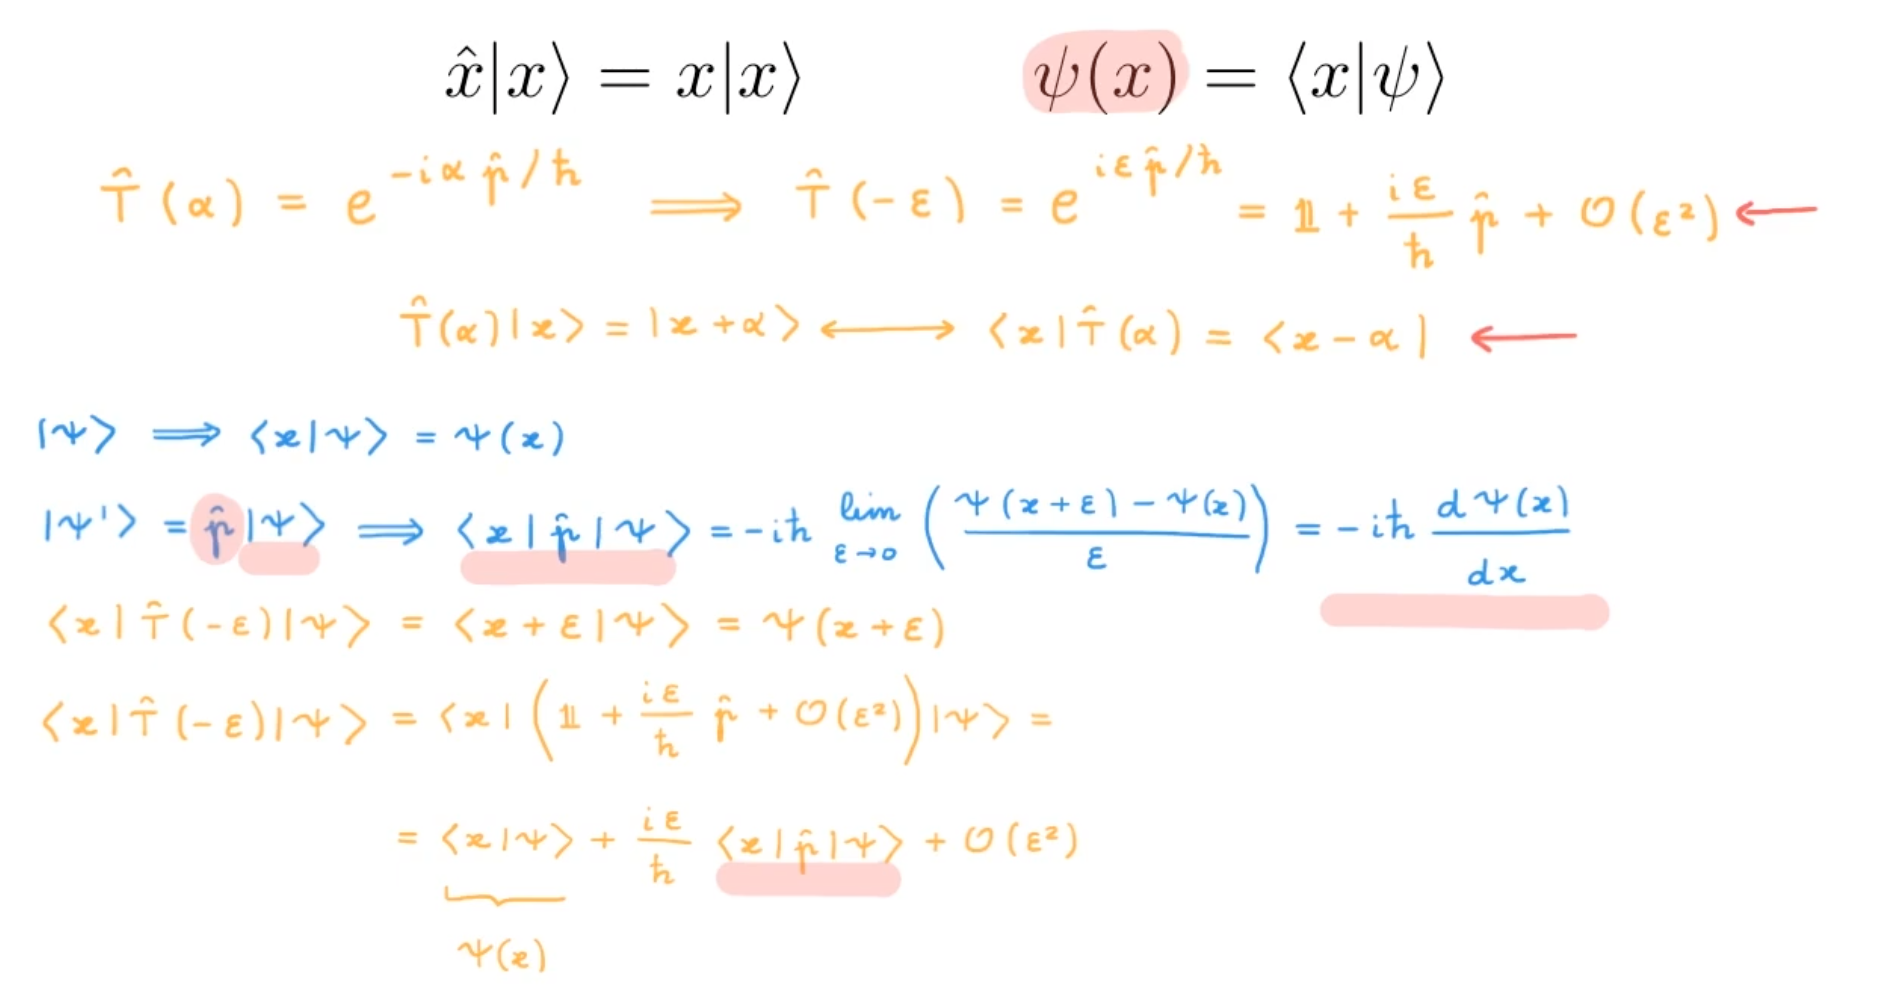 x̂|x⟩ = x|x⟩ ψ(x) = ⟨x|ψ⟩
T̂(α) = e^{-iαp̂/ħ} ⟹ T̂(-ε) = e^{iεp̂/ħ} = 𝟙 + \frac{iε}{ħ} p̂ + O(ε²) ←
T̂(α)|x⟩ = |x+α⟩ ⟷ ⟨x|T̂(α) = ⟨x-α| ←
|ψ⟩ ⟹ ⟨x|ψ⟩ = ψ(x)
|ψ'⟩ = p̂|ψ⟩ ⟹ ⟨x|p̂|ψ⟩ = -iħ lim_{ε→0} (\frac{ψ(x+ε) - ψ(x)}{ε}) = -iħ \frac{dψ(x)}{dx}
⟨x|T̂(-ε)|ψ⟩ = ⟨x+ε|ψ⟩ = ψ(x+ε)
⟨x|T̂(-ε)|ψ⟩ = ⟨x|(𝟙 + \frac{iε}{ħ} p̂ + O(ε²))|ψ⟩ =
= ⟨x|ψ⟩ + \frac{iε}{ħ} ⟨x|p̂|ψ⟩ + O(ε²)
ψ(x)